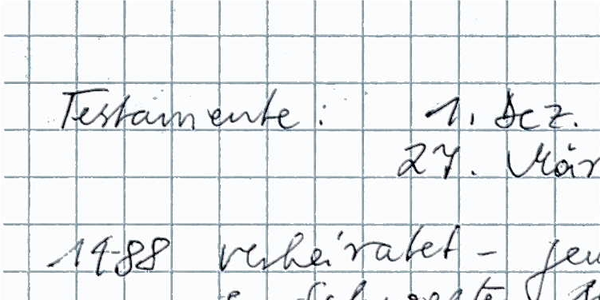 Testamente: 1. Dez.
27. Mär
1988 verheiratet - jew